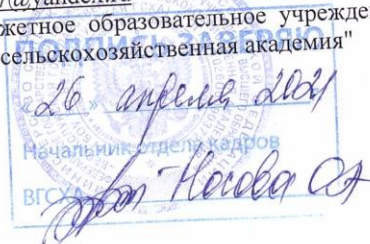 @yandex.ru
жетное образовательное учрежде
сельскохозяйственная академия"
ПОДПИСЬ ЗАВЕРЯЮ
26 апреля 2021
Начальник отдела кадров
ВГСХА
Носова ОА